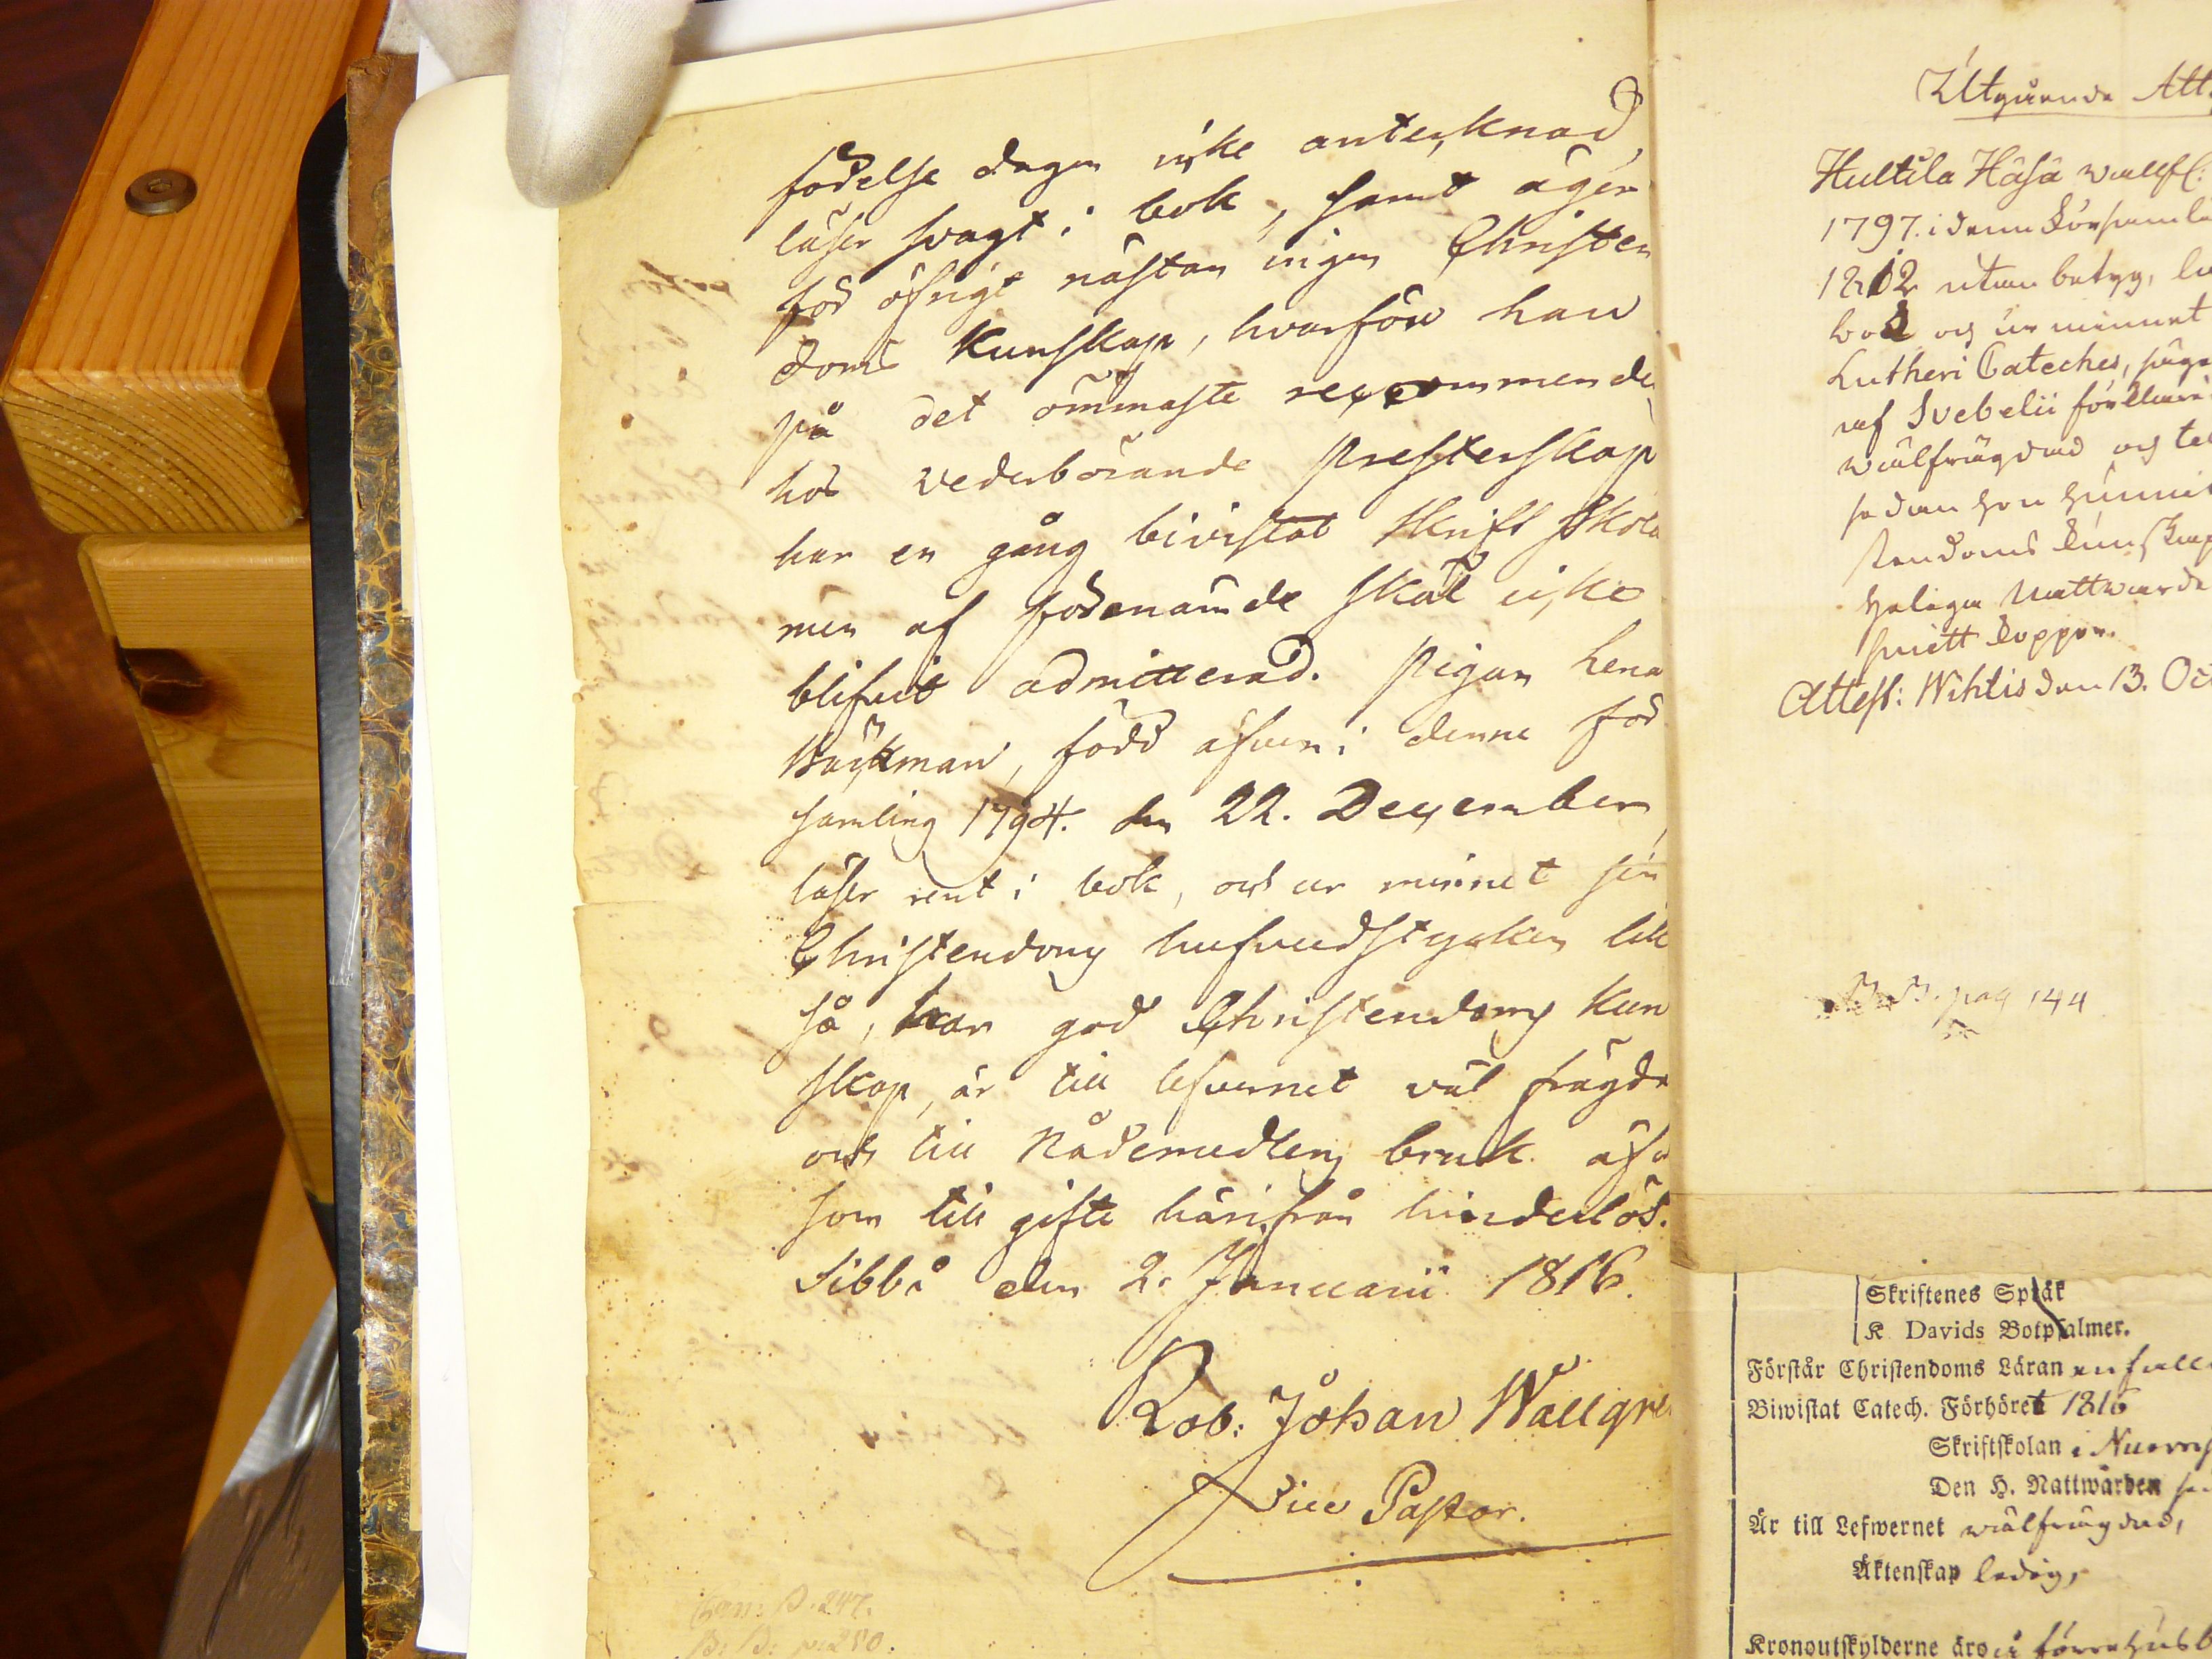 födelse dagen icke antecknad,
läser svagt i bok, samt äger
för öfrigt nästan ingen Christen
doms Kunskap, hvarföre han
på det ömmaste recommenderas
hos vederbörande Presterskap
har en gång bivistat Skrift Skola
men af förenämde skäl icke
blifvit admitterad. Pigan Lena
Bäckman, född äfven i denne för
samling 1794. den 22. December,
läser rent i bok, och ur minnet sin
Christendoms hufvudstycken lik
så, har god Christendoms Kun
skap, är till lefvernet väl frägda
och till Nådemedlens bruk äfv
som till gifte härifrån hinderlös.
Sibbå den 2. Januarii 1816.
Rob: Johan Wallgre
Vice Pastor.
p. 247.
B: B: p: 250.
Utgående Att
Hultila Häjä
1797. i denna Församli
1812 utan betyg,
bok och ur minnet
Lutheri Cateches,
af Svebelii förklari
wälfrägdad och
sedan hon
stendoms kunskap
Heliga Nattwarde
haft koppor.
Attest: Wihtis den 13. Oct
B. B. pag 144
Skriftenes Språk
K Davids Botpsalmer.
Förstår Christendoms Läran enfalli
Biwistat Catech. Förhöret 1816
Skriftskolan i
Den H. Nattwarden
Är till Lefwernet wälfrägdad,
Äktenskap ledig,
Kronoutskylderne äro i